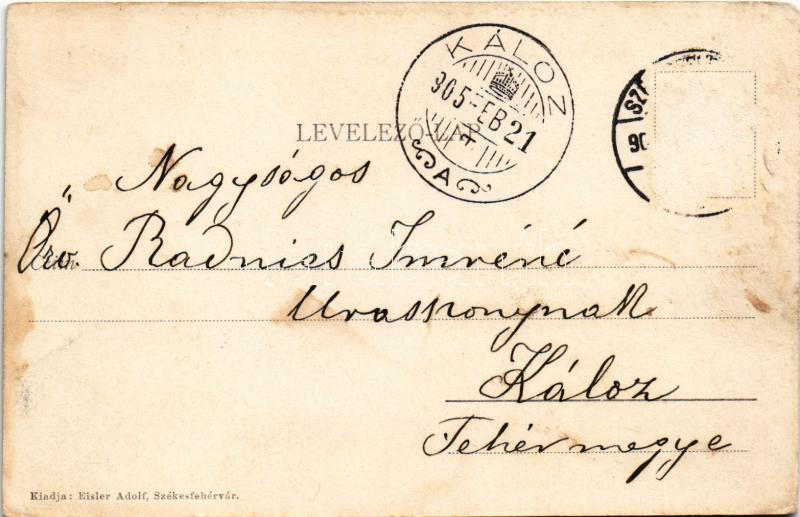 KÁLOZ
905 FEB 21
A
SZ
90
LEVELEZŐ-LAP.
Nagyságos
Özv. Radnics Imréné
Uraszonynak
Káloz
Fehérmegye
Kiadja: Eisler Adolf, Székesfehérvár.